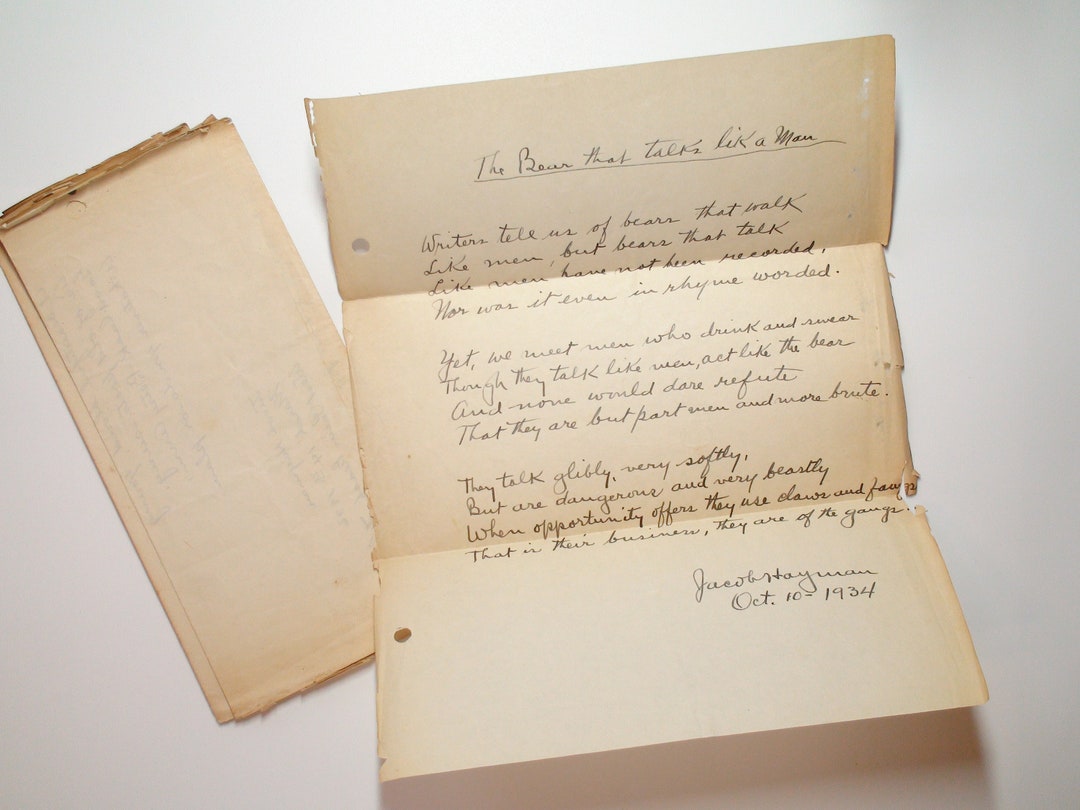 The Bear that talks lik a Man
Writers tell us of bears that walk
Like men, but bears that talk
Like men have not been recorded,
Nor was it even in rhyme worded.
Yet, we meet men who drink and swear
Though they talk like men, act like the bear
And none would dare refute
That they are but part men and more brute.
They talk glibly, very softly,
But are dangerous and very beastly
When opportunity offers they use claws and fangs
That is their business, they are of the gangs.
Jacob Hayman
Oct. 10 - 1934